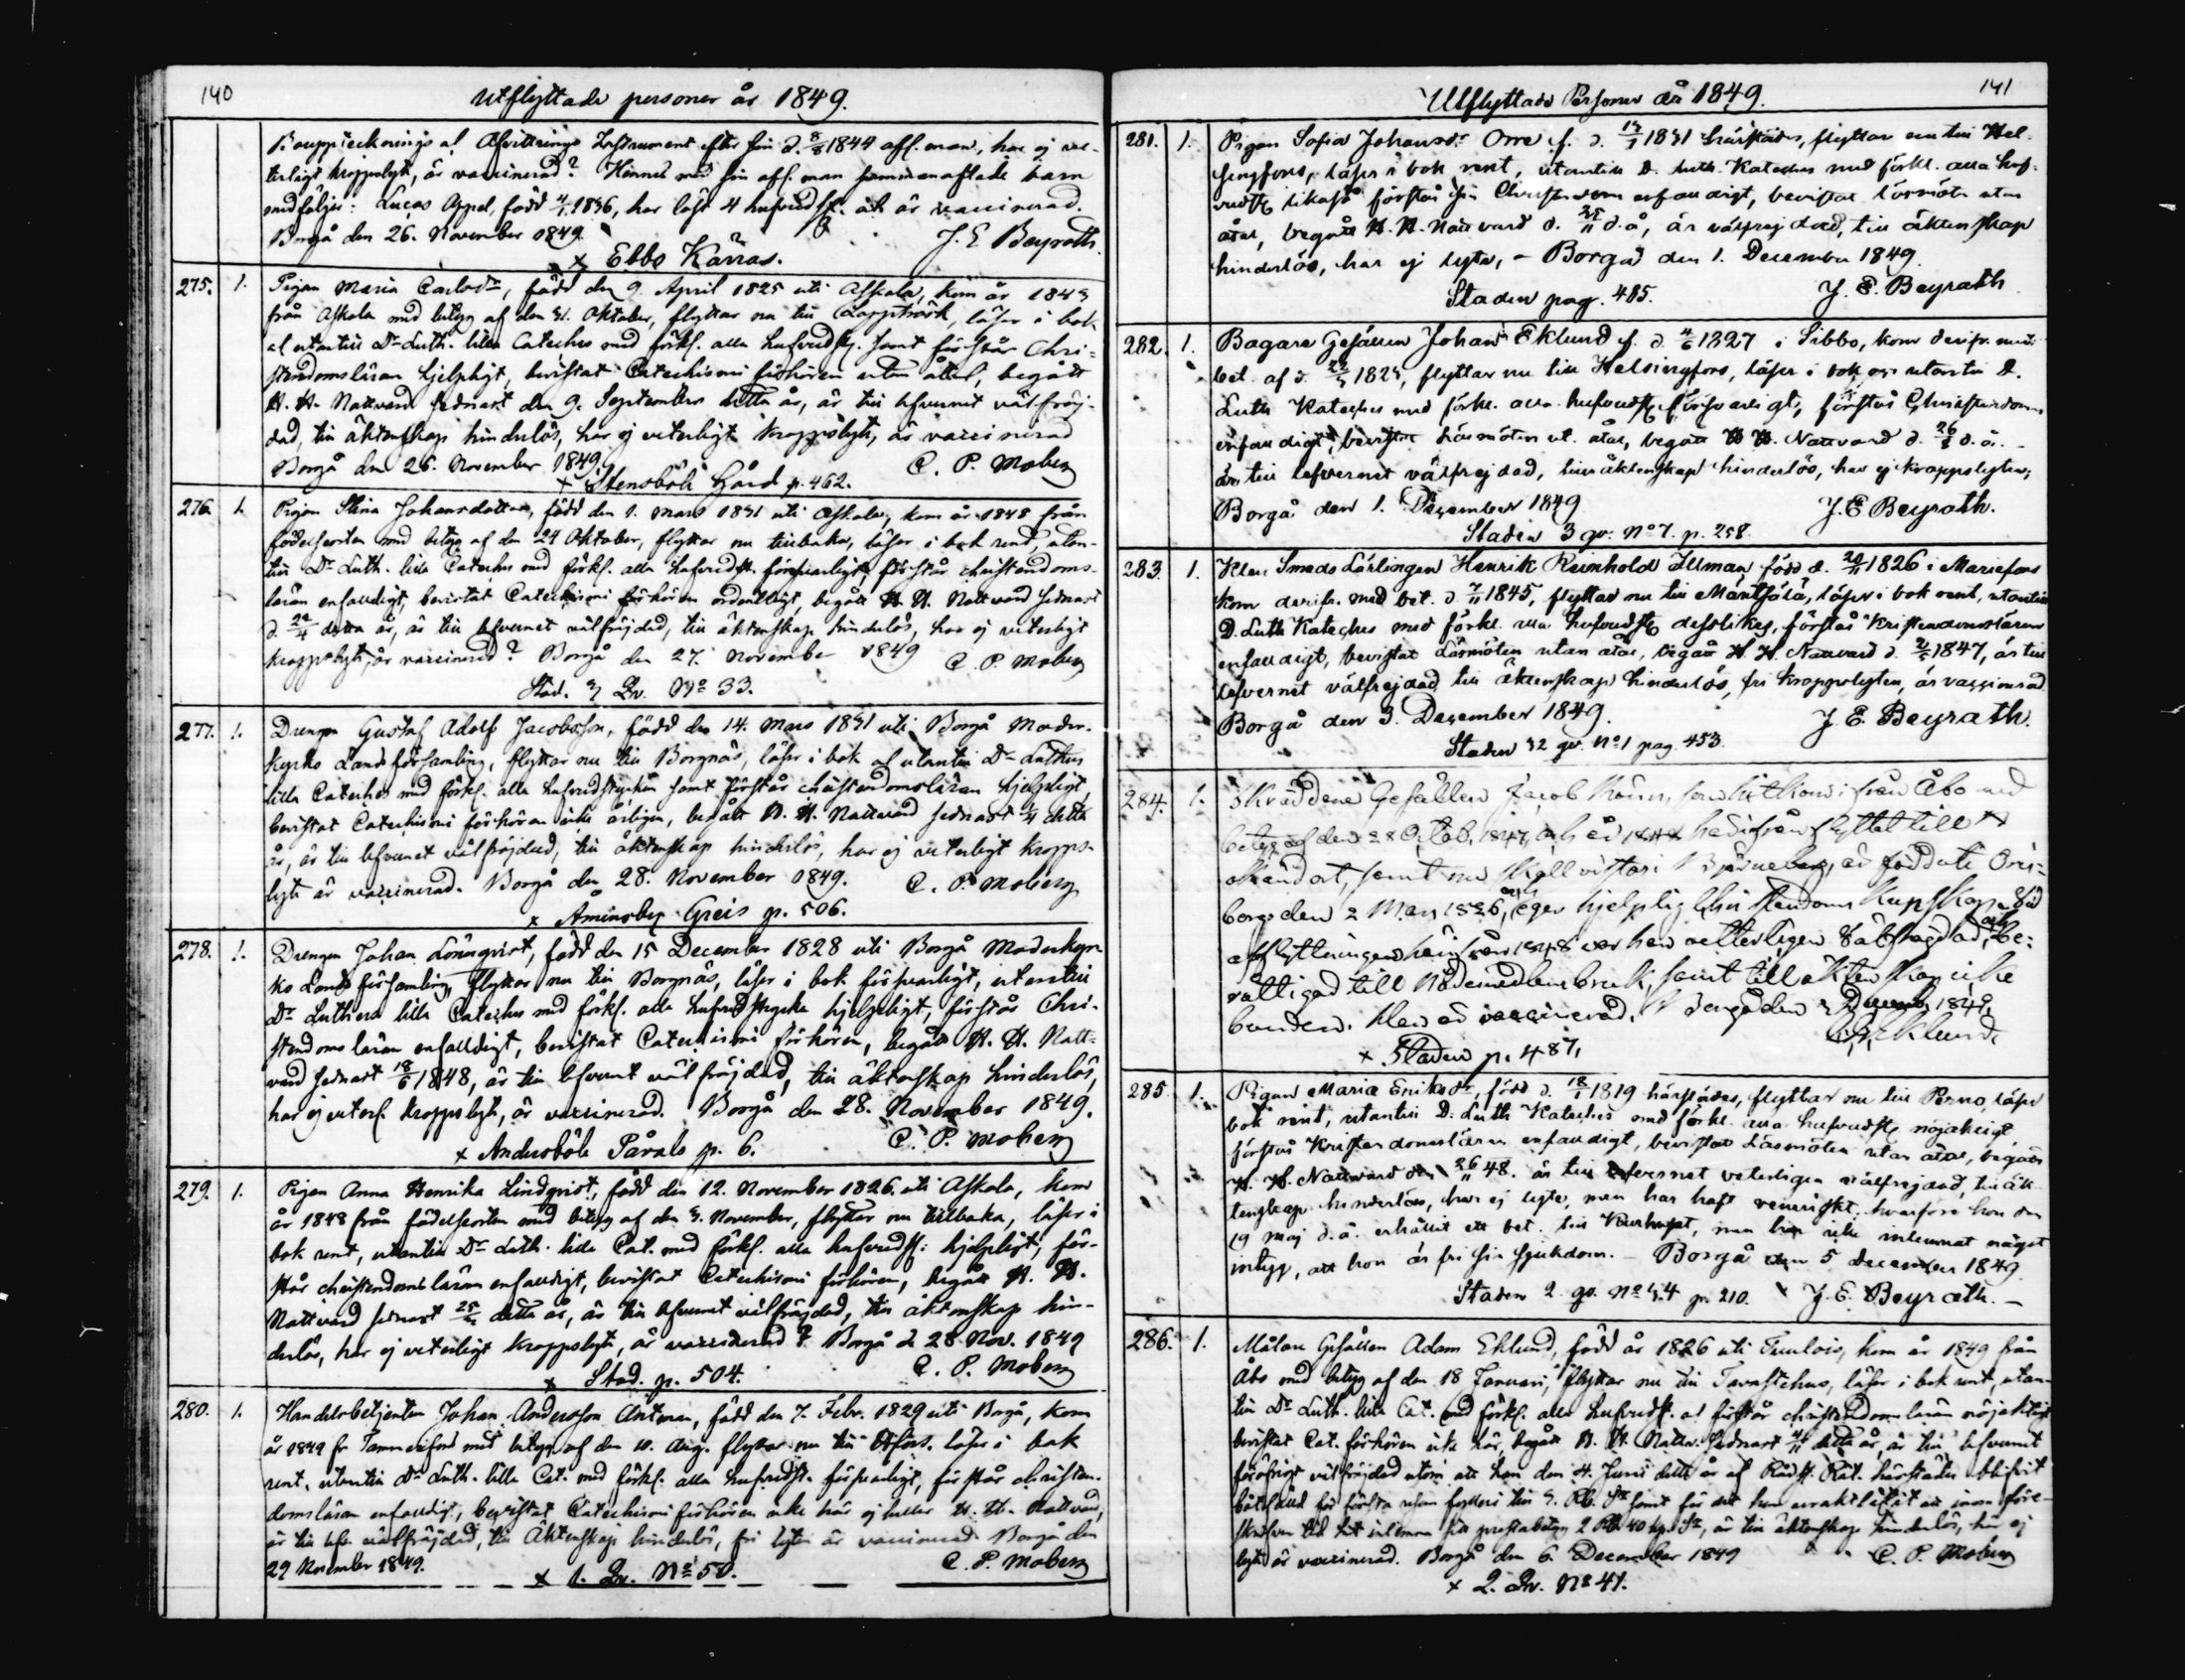 140
Utflyttade personer år 1849.
Bouppteckningsal Afvittrings Instrument efter sin d. 8/8 1844 afl. man, har ej vet-
terligt kroppslyte, är vaccinerad? Hennes med sin afl. man sammanaflade barn
medföljer: Lucas Appel, född 1836, har läst 4 hufvudst. och är vaccinerad.
Borgå den 26. November 1849. J. E. Beyrath.
x Ebbo Kärras.
275. 1. Pigan Maria Carlsdr, född den 9. April 1825 uti Askola, kom år 1843
från Askola med betyg af den 31. Oktober, flyttar nu till , läser i bok
al utantill Dr Luth. lilla Cateches med förkl. alla hufvudst. samt förstår Chri-
stendomsläran hjelpligt, bevistat Catechismi förhören utom åtal, begått
H. H. Nattvard sednast den 9. September detta år, är till lefvernet välfräj-
dad, till äktenskap hinderlös, har ej veterligt kroppslyte, är vaccinerad
Borgå den 26. November 1849. C. P. Moberg
x Stensböle Gård p. 462.
276. 1. Pigan Stina Johansdotter, född den 1. Mars 1831 uti Askola, kom år 1848 från
födelseorten med betyg af den 24 Oktober, flyttar nu tillbaka, läser i bok rent, utan-
till Dr Luth. lilla Cateches med förkl. alla hufvudst. försvarligt, förstår christendoms-
läran enfaldigt, bevistat Catechismi förhören ordentligt, begått H. H. Nattvard sednast
d. 22/4 detta år, är till lefvernet välfräjdad, till äktenskap hinderlös, har ej veterligt
kroppslyte, är vaccinerad? Borgå den 27. November 1849 C. P. Moberg
Stad. 3 Qv. No 33.
277. 1. Drengen Gustaf Adolf Jacobsson, född den 14. Mars 1831 uti Borgå Moder-
kyrko Landsförsamling, flyttar nu till Borgnäs, läser i bok al utantill Dr Luthers
lilla Cateches med förkl. alla hufvudstycken samt förstår christendomsläran hjelpligt,
bevistat Catechismi förhören icke årligen, begått H. H. Nattvard sednast detta
år, är till lefvernet välfräjdad, till äktenskap hinderlös, har ej veterligt kropps-
lyte är vaccinerad. Borgå den 28. November 1849. C. P. Moberg
x Åminsby Greis p. 506.
278. 1. Drengen Johan Lönnqvist, född den 15 December 1828 uti Borgå Moderkyr-
ko Landsförsamling, flyttar nu till Borgnäs, läser i bok försvarligt, utantill
Dr Luthers lilla Cateches med förkl. alla hufvudstycken hjelpligt, förstår Chri-
stendomsläran enfaldigt, bevistat Catechismi förhören, begått H. H. Natt-
vard sednast 18/6 1848, är till lefvernet välfräjdad, till äktenskap hinderlös,
har ej veterl. kroppslyte, är vaccinerad. Borgå den 28. November 1849.
x Andersböle Pårals p. 6. C. P. Moberg
279. 1. Pigan Anna Henrika Lindqvist, född den 12. November 1826 uti Askola, kom
år 1848 från födelseorten med betyg af den 3. November, flyttar nu tillbaka, läser i
bok rent, utantill Dr Luth. lilla Cat. med förkl. alla hufvudst. hjelpligt, för-
står christendomsläran enfaldigt, bevistat Catechismi förhören, begått H. H.
Nattvard sednast detta år, är till lefvernet välfräjdad, till äktenskap hin-
derlös, har ej veterligt kroppslyte, är vaccinerad? Borgå d 28. Nov. 1849
x Stad. p. 504. C. P. Moberg
280. 1. Handelsbetjenten Johan Andersson Antman, född den 7. Febr. 1829 uti Borgå, kom
år 1849 fr. med betyg af den 10. Aug. flyttar nu till Hfors. läser i bok
rent, utantill Dr Luth. lilla Cat. med förkl. alla hufvudst. försvarligt, förstår christen-
domsläran enfaldigt, bevistat Catechismi förhören icke här ej heller H. H. Nattvard,
är till lefv. välfräjdad, till Äktenskap hinderlös, fri lyten är vaccinerad. Borgå den
29 November 1849. C. P. Moberg
x 1. Qv. No 50.
141
Utflyttade Personer år 1849.
281. 1. Pigan Sofia Johansdr Orre f. d. 1831 härstädes, flyttar nu till Hel-
singfors, läser i bok rent, utantill D. Luth. Kateches med förkl. alla huf-
vudst. likaså förstår sin Christendom enfaldigt, bevistat läsmöten utan
åtal, begått H. H. Nattvard d. d. å, är välfrejdad, till äktenskap
hinderlös, har ej lyte, – Borgå den 1. December 1849.
Staden pag. 485. J. E. Beyrath
282. 1. Bagare Gesällen Johan Eklund f. d. 4/6 1827 i Sibbo, kom derifr. med
bet. af d. , flyttar nu till Helsingfors, läser i bok och utantill D.
Luth Kateches med förkl. alla hufvudst. försvarligt, förstår Christendomen
enfaldigt, bevistat läsmöten ut. åtal, begått H H. Nattvard d. d. å.
är till lefvernet välfrejdad, till äktenskap hinderlös, har ej kroppslyten,
Borgå den 1. December 1849 J. E. Beyrath.
Staden 3 qv: No 7. p. 258.
283. 1. Klen Smeds Lärlingen Henrik Reinhold Illman född d. 20/11 1826 i Mariefors
kom derifr. med bet. d. 7/11 1845, flyttar nu till Mäntsälä, läser i bok rent, utantill
D. Luth Kateches med förkl. alla hufvudst. desslikes, förstår Kristendomsläran
enfaldigt, bevistat Läsmöten utan åtal, begått H. H. Nattvard d. 1847, är till
lefvernet välfrejdad till äktenskap hinderlös, fri kroppslyten, är vaccinerad
Borgå den 3. December 1849. J. E. Beyrath.
Staden 32 gv. No 1 pag. 453.
284. 1. Skräddare Gesällen Jacob , som hitkom ifrån Åbo med
betyg af den 28 Octob. 1847, och år härifrån flyttat till
okänd ort, samt nu skall vistas i Björneborg, är född uti Oris-
berg den 2 Mars 1826, eger hjelplig Christendoms kunskap, vid
afflyttningen härifrån 1848 var han vetterligen välfräjdad, be-
rättigad till Nådemedlens bruk, samt till äktenskap icke
bunden. Han är vaccinerad. Borgå den Decemb 1849.
x Staden p. 487. Eklund.
285. 1. Pigan Maria Eriksdr, född d. 18/1 1819 härstädes, flyttar nu till Perno, läser
bok rent, utantill D. Luth Kateches med förkl. alla hufvudst. nöjaktigt
förstår Kristendomsläran enfaldigt, bevistat Läsmöten utan åtal, begått
H. H. Nattvard den 26/11 48. är till lefvernet veterligen välfrejdad, till äk-
tenskap hinderlös, har ej lyte, men har haft venerisk, hvarföre hon den
19 maj d. å. erhållit ett bet. till Kurhuset, men har icke inlemnat något
intyg, att hon är fri sin sjukdom. – Borgå den 5 December 1849
Staden 2. qv. No 54 p. 210. J. E. Beyrath. –
286. 1. Målare Gesällen Adam Eklund, född år 1826 uti Tuulois, kom år 1849 från
Åbo med betyg af den 18 Januari, flyttar nu till Tavastehus, läser i bok rent, utan-
till Dr Luth. lilla Cat. med förkl. alla hufvudst. al förstår christendomsläran nöjaktigt
bevistat Cat. förhören icke här, begått H. H. Nattv. sednast 4/11 detta år, är till lefvernet
föröfrigt välfräjdad utom att han den 4. Junii detta år af Rådst. Rät. härstädes blifvit
bötfälld för första resan fylleri till 3. Rb. Sr samt för det han uraktlåtit att inom före-
skrifven tid hit inlemna sitt prestabetyg 2 Rb 40 kop. Sr, är till äktenskap hinderlös, har ej
lyte är vaccinerad. Borgå den 6. December 1849 C. P. Moberg
x 2. Qv. No 41.